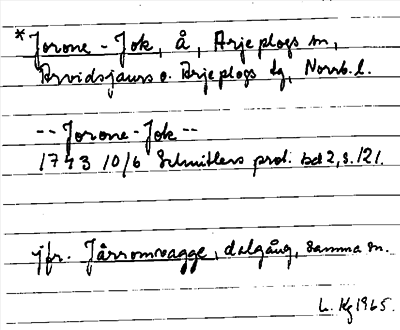 *Jorone-Jok, å, Arjeplogs sn,
Arvidsjaurs o. Arjeplogs tg, Norrb. l.
-- Jorone-Jok --
1743 10/6 Schnitlers prot. bd 2, s. 121.
jfr. Jårromvagge, dalgång, samma sn.
L. Kg 1965.